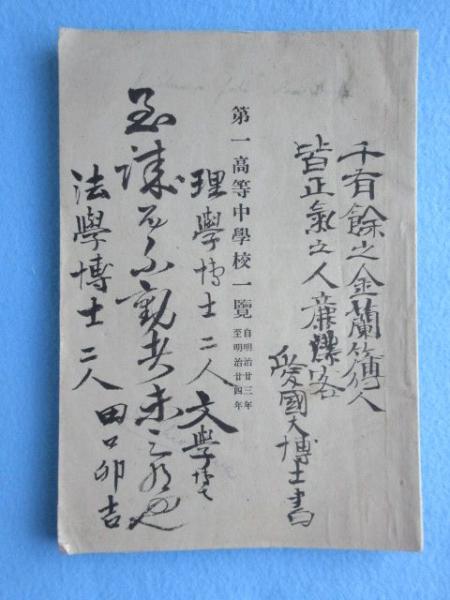 千有餘之金蘭簿人
皆正氣之人
愛國大博士書
第一高等中學校一覽
自明治廿三年
至明治廿四年
理學博士二人文學博士
至誠而不動者未之有也
法學博士二人 田口卯吉